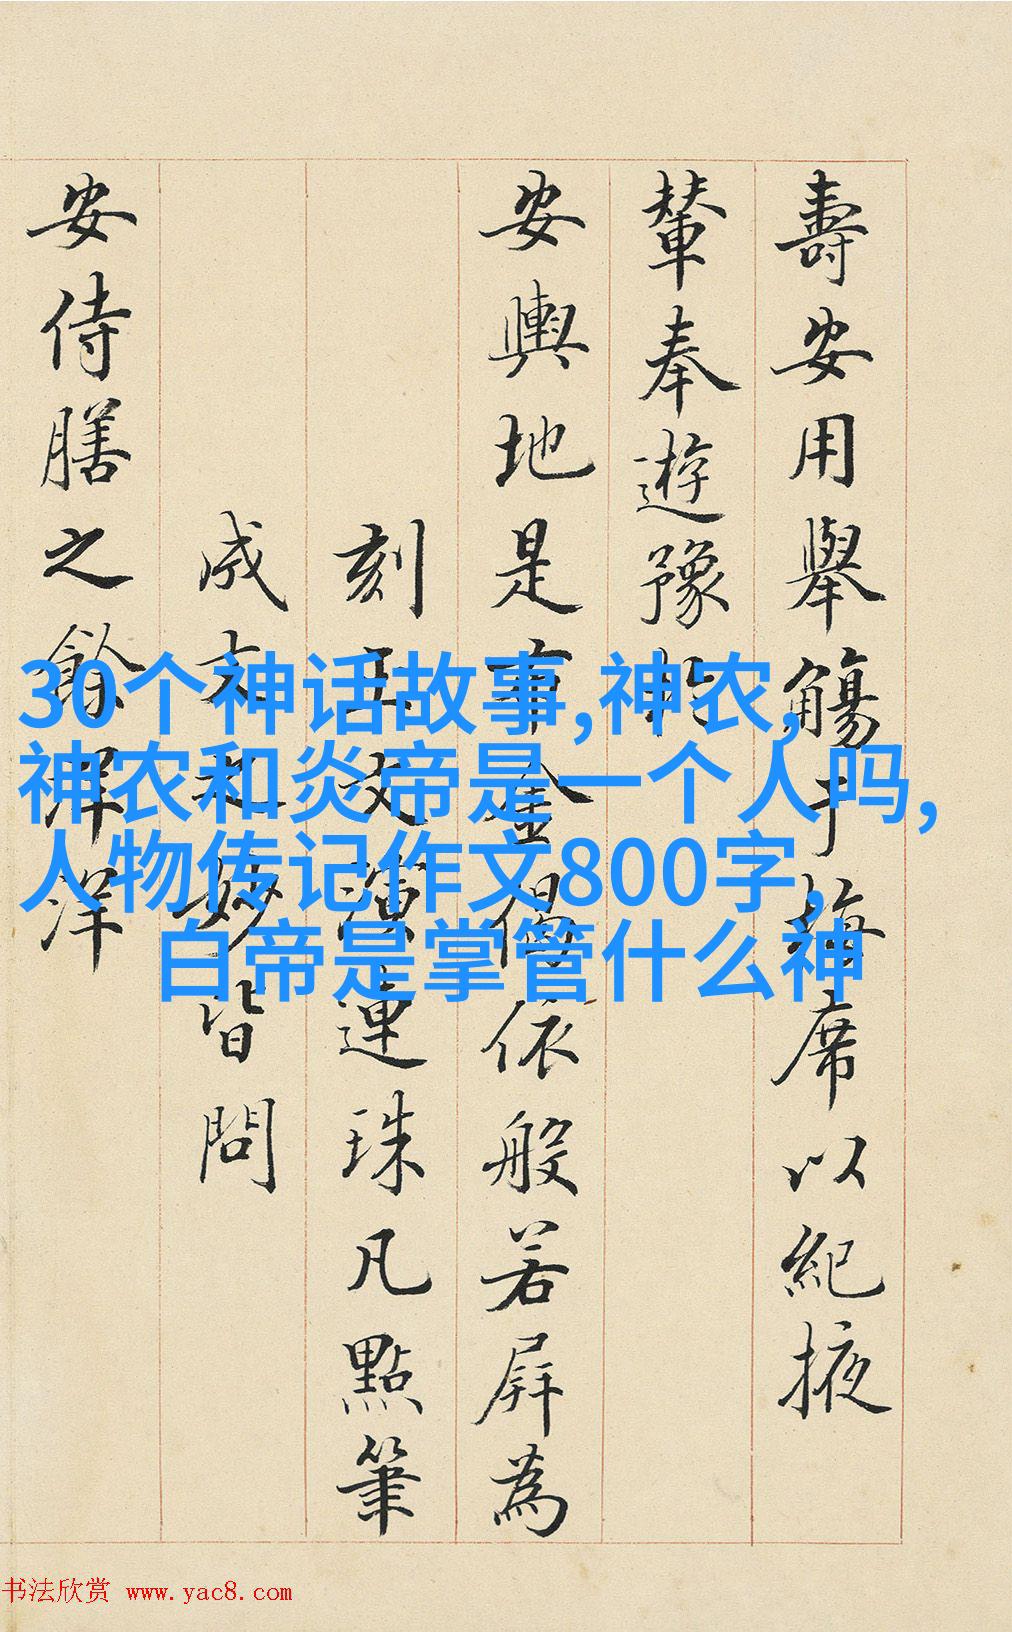 30个神话故事,神农,
神农和炎帝是一个人吗,
人物传记作文800字,
白帝是掌管什么神
壽安用舉觴于梅席以紀掖
輦奉遊豫於
安輿地是金偈依般若屏為
刻玉又演連珠凡點筆
成文之妙皆問
安侍膳之餘洋洋
书法欣赏 www.yac8.com